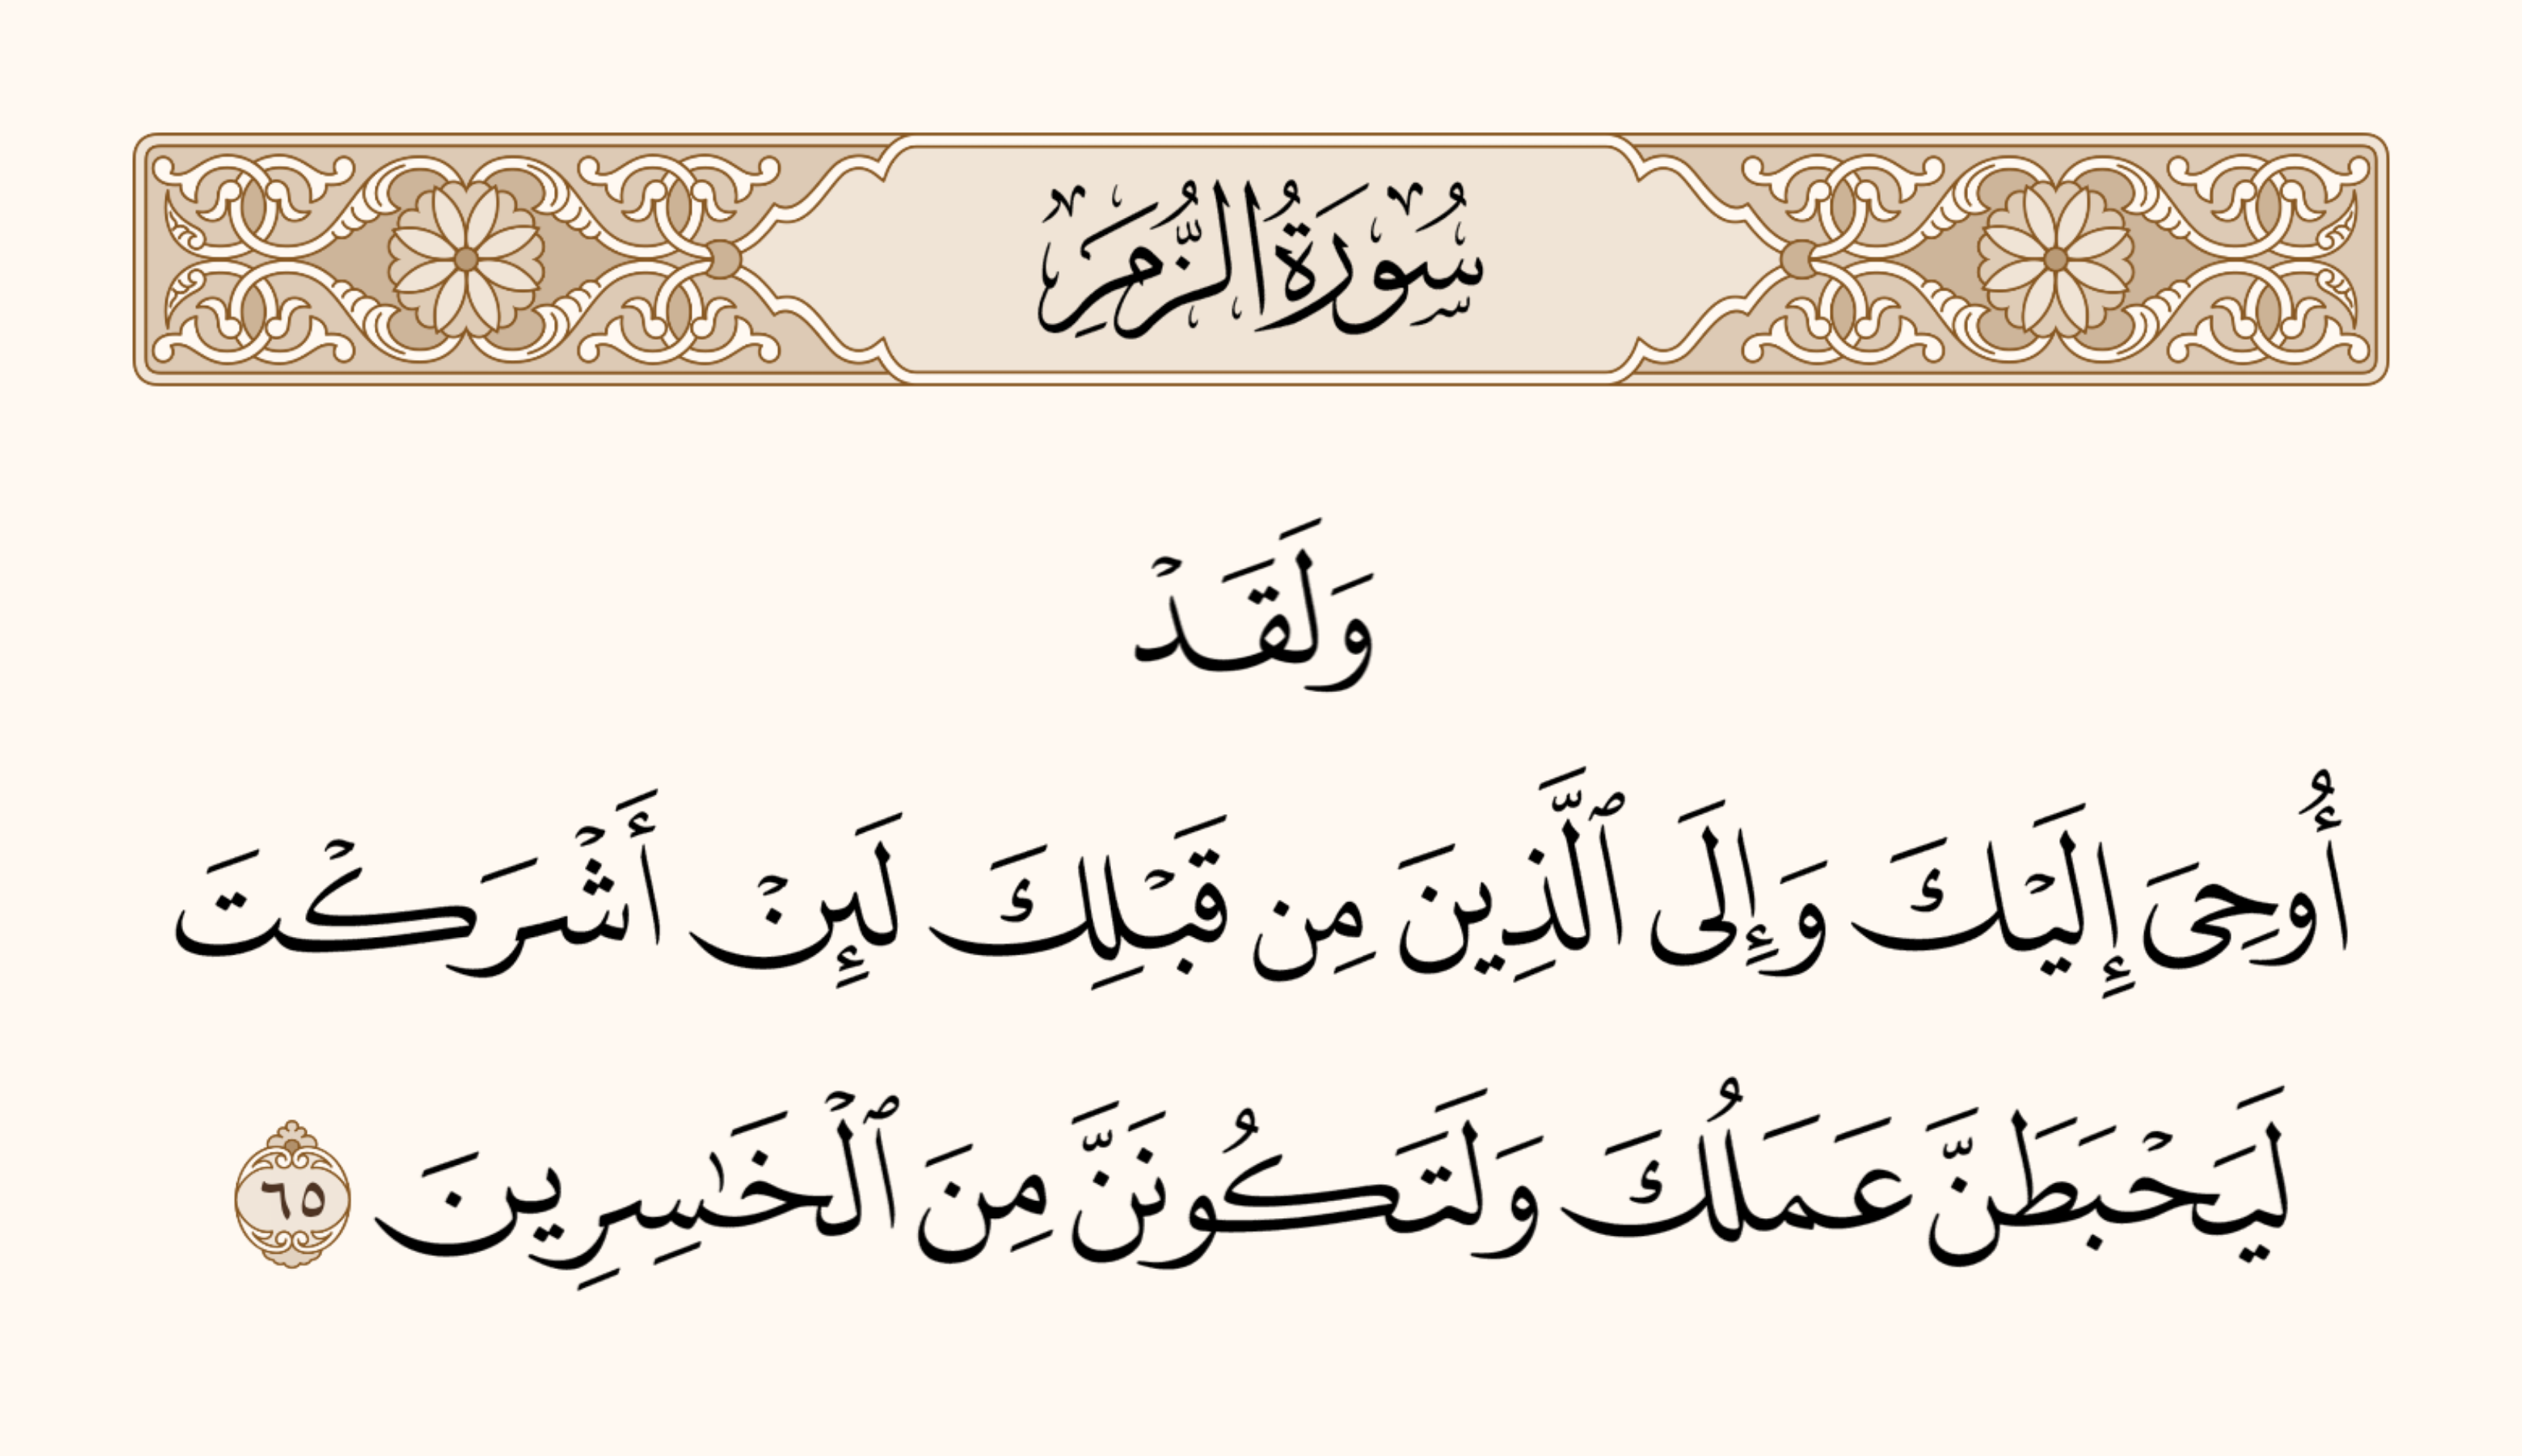 سُورَةُ الزُّمَرِ
وَلَقَدْ
أُوحِىَ إِلَيْكَ وَإِلَى ٱلَّذِينَ مِن قَبْلِكَ لَئِنْ أَشْرَكْتَ
لَيَحْبَطَنَّ عَمَلُكَ وَلَتَكُونَنَّ مِنَ ٱلْخَـٰسِرِينَ ٦٥